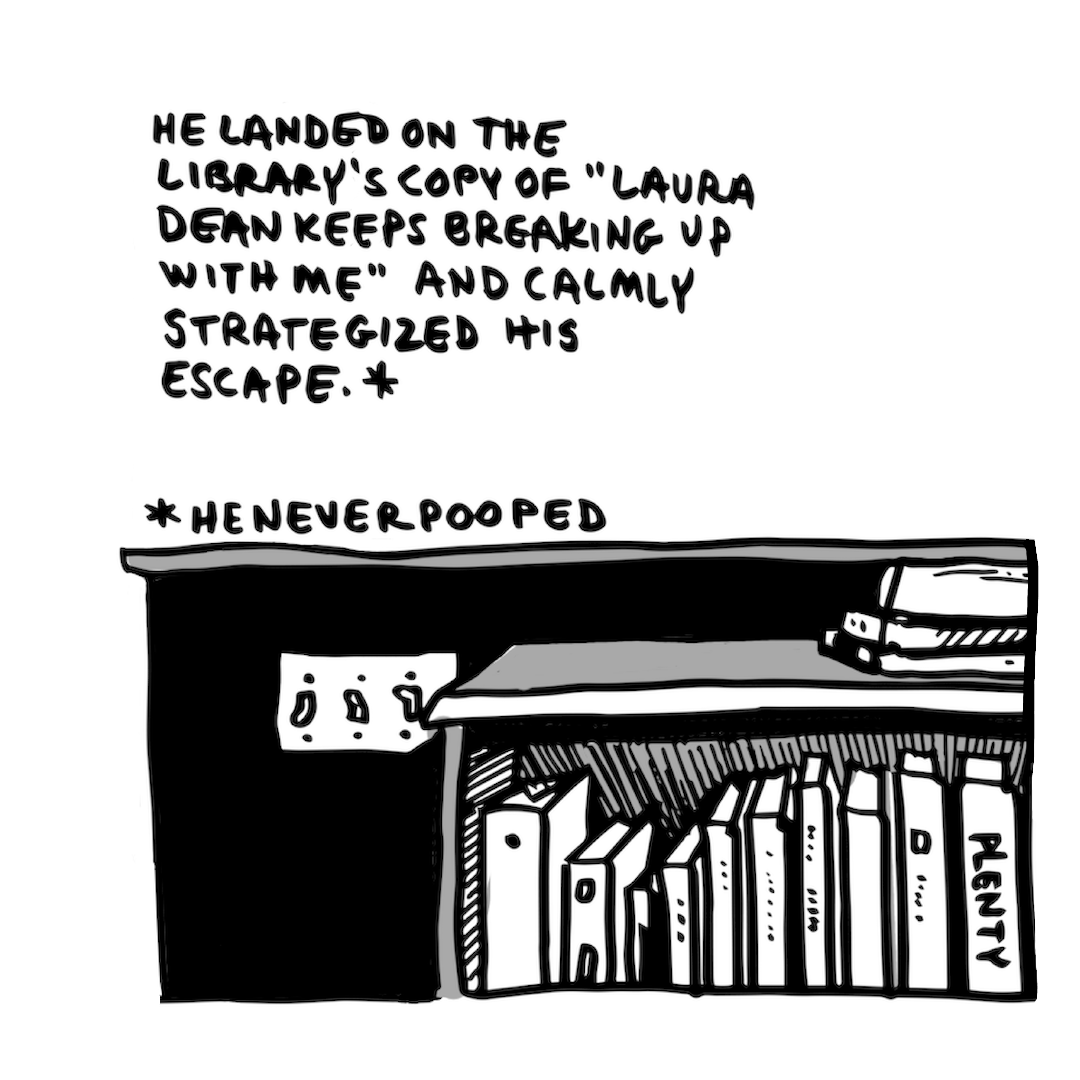 HE LANDED ON THE
LIBRARY'S COPY OF "LAURA
DEAN KEEPS BREAKING UP
WITH ME" AND CALMLY
STRATEGIZED HIS
ESCAPE.*
*HE NEVER POOPED
PLENTY